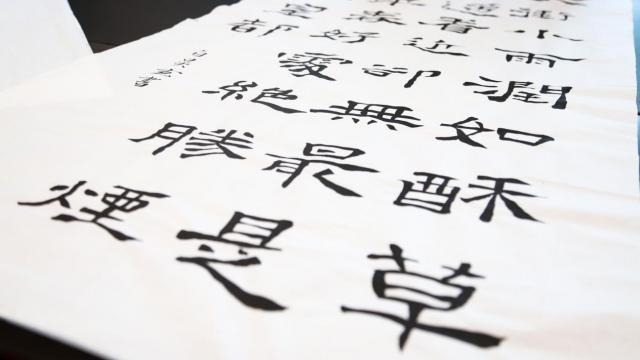 街小雨潤如酥草
遙看近卻無最是
年春好處絕勝煙
皇都